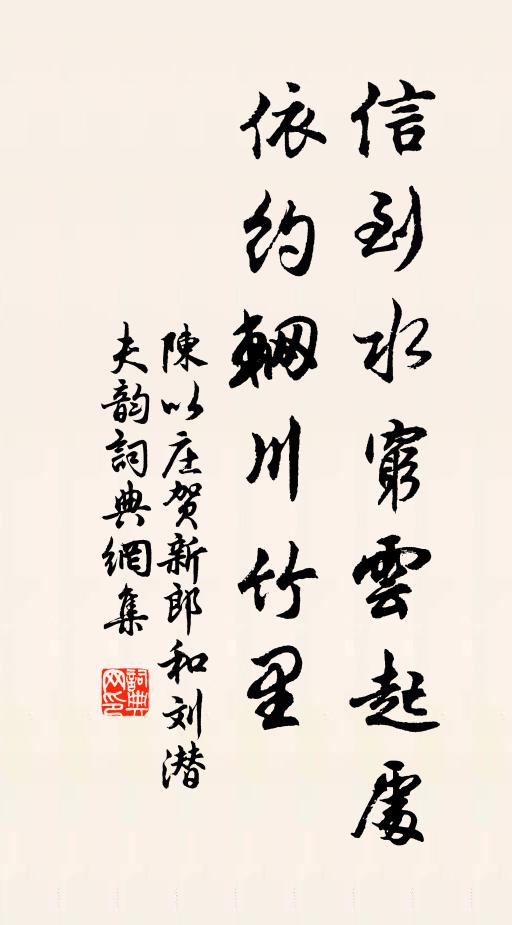 信到水窮雲起處
依約輞川竹里
陳以庄贺新郎和刘潜
夫韵詞典網集
詞典
网印